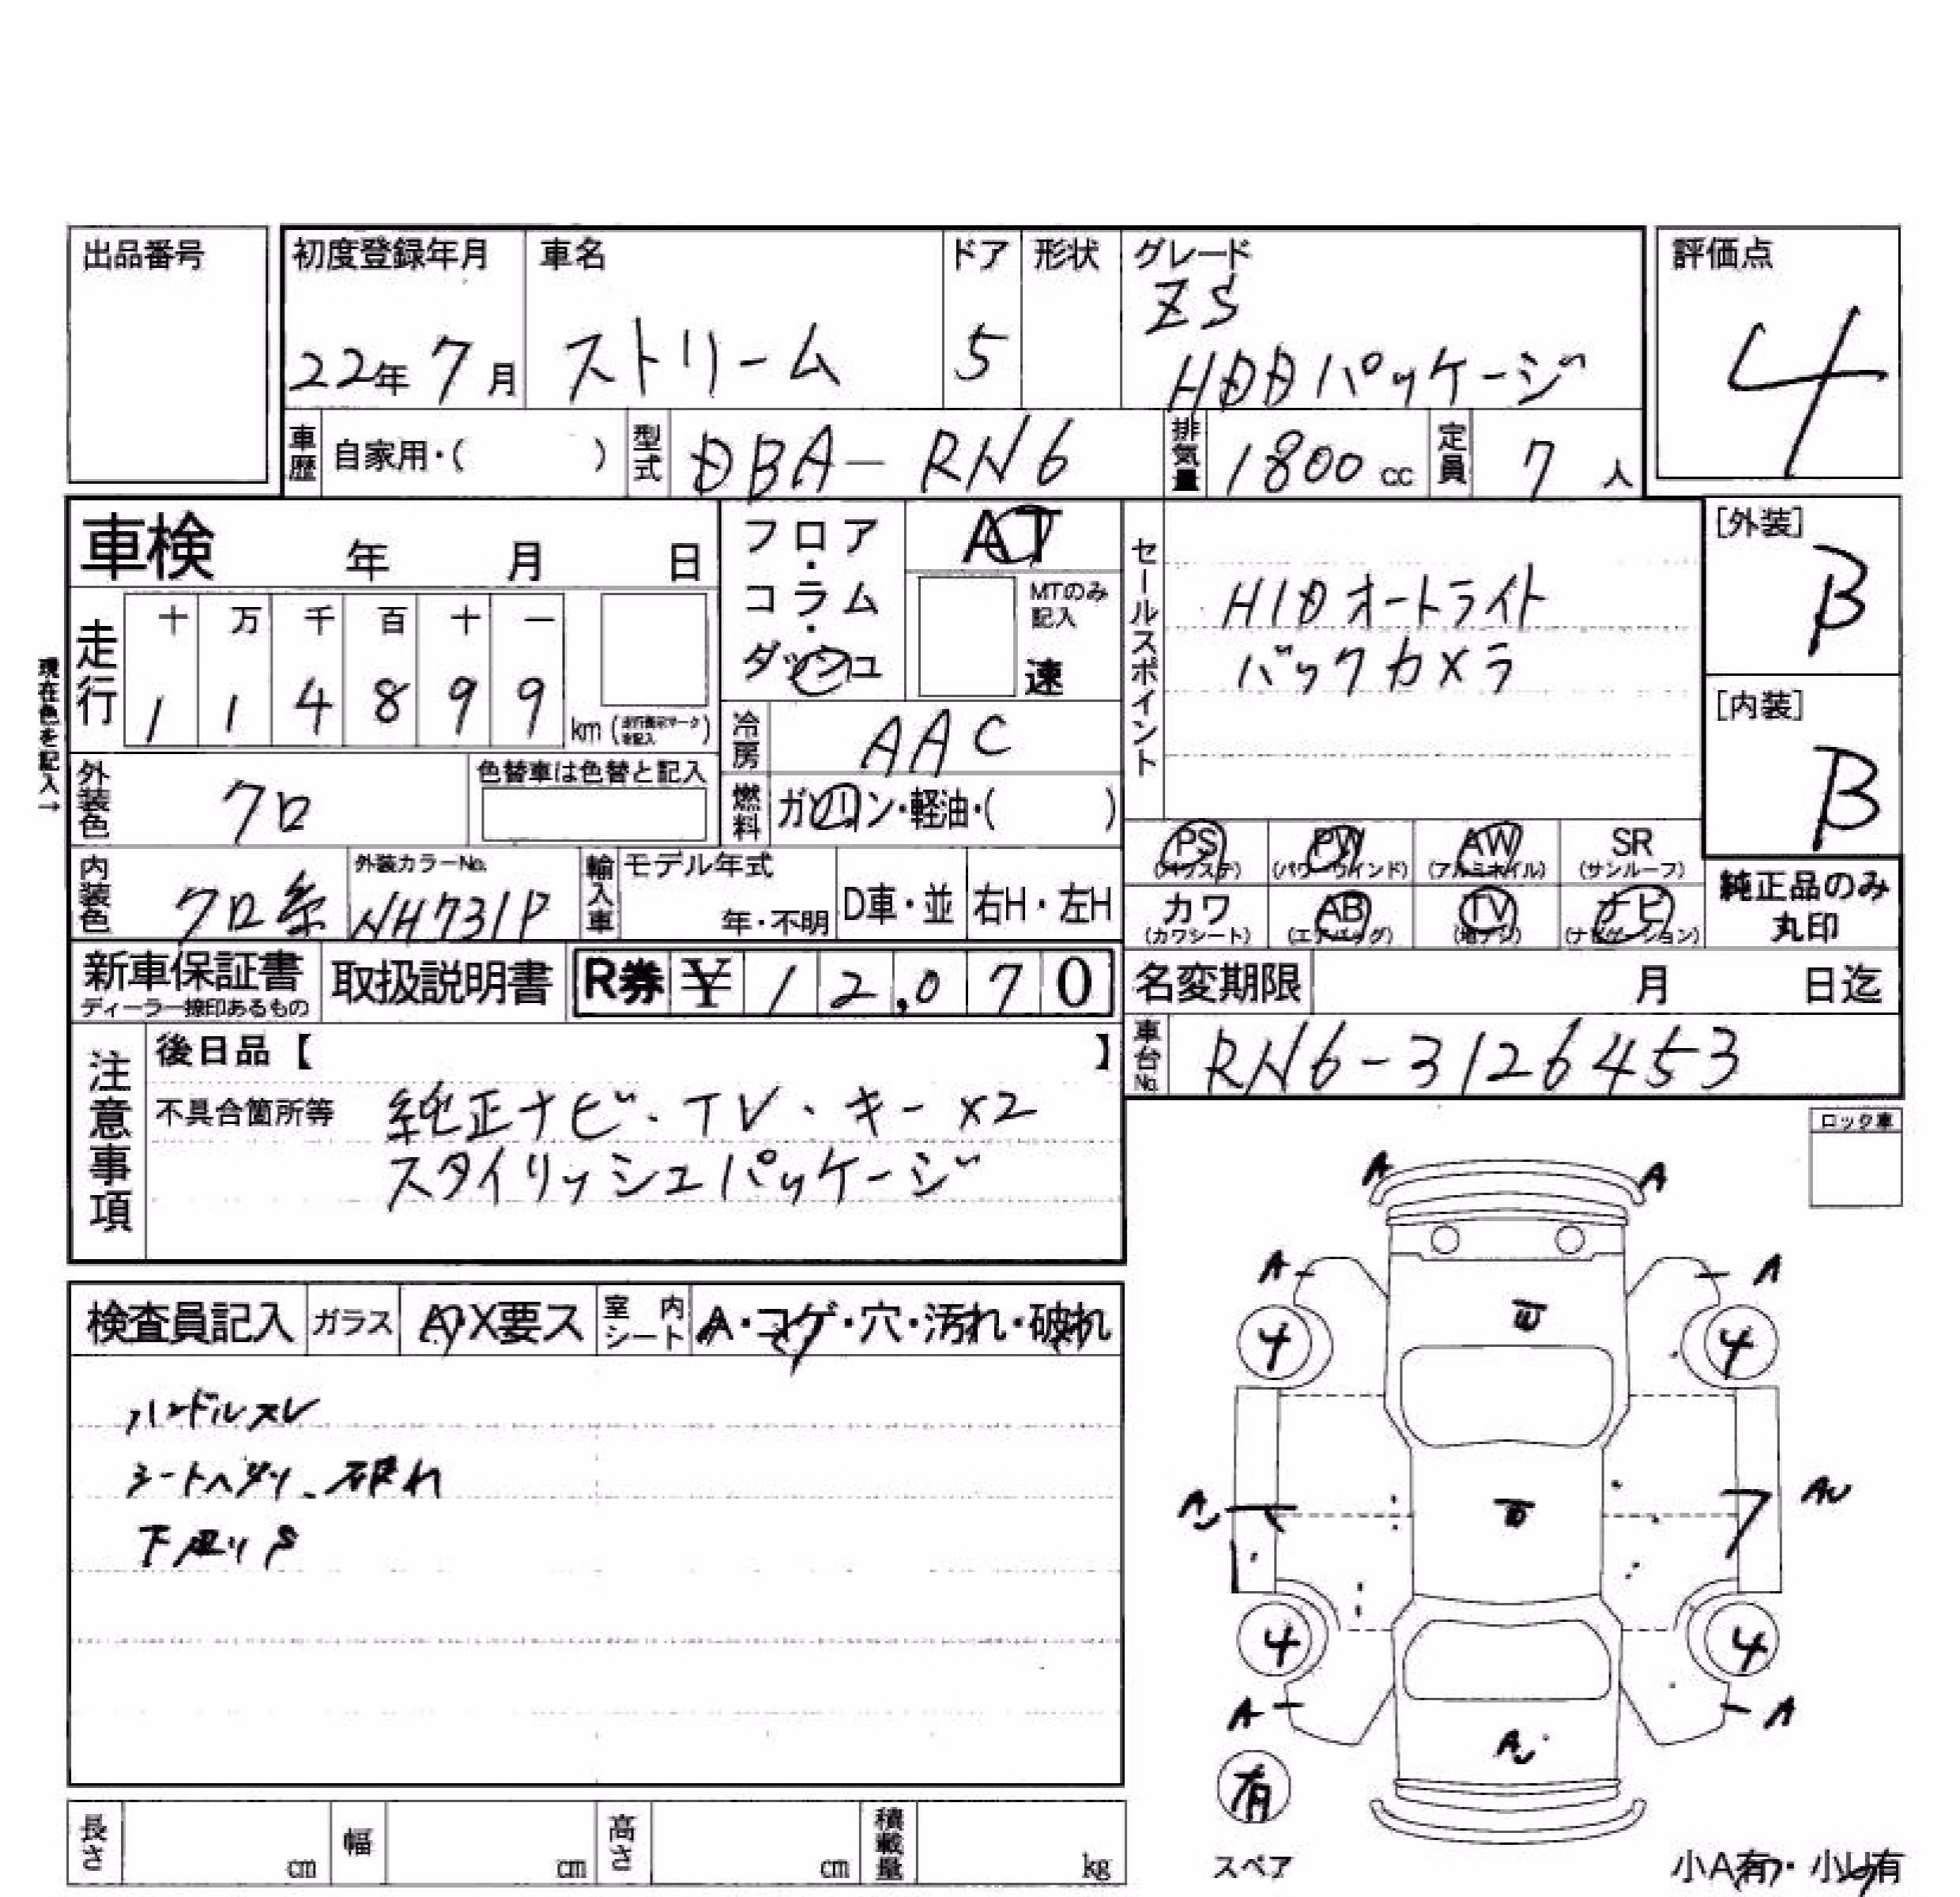 出品番号
初度登録年月 車名 ドア 形状 グレード 評価点
22年 7月 ストリーム 5 ZS
HDDパッケージ
4
車歴 自家用・( ) 型式 DBA-RN6 排気量 1800 cc 定員 7 人
車検 年 月 日
フロア・コラム・ダッシュ
AT
MTのみ記入
速
セールスポイント
HIDオートライト
バックカメラ
[外装]
B
[内装]
B
現在色を記入→
走行 十 万 千 百 十 一
1 1 4 8 9 9 km
冷房 AAC
外装色 クロ 色替車は色替と記入
燃料 ガソリン・軽油・( )
PS PW AW SR
(パワステ) (パワーウインド) (アルミホイル) (サンルーフ)
カワ AB TV ナビ
(カワシート) (エアバッグ) (地デジ) (ナビゲーション)
純正品のみ
丸印
内装色 クロ系 外装カラーNo. NH731P 輸入車 モデル年式 年・不明 D車・並 右H・左H
新車保証書
ディーラー捺印あるもの
取扱説明書 R券 ¥ 12,070
名変期限 月 日迄
車台No. RN6-3126453
注意事項
後日品【 】
不具合箇所等 純正ナビ・TV・キー×2
スタイリッシュパッケージ
ロック車
検査員記入 ガラス A X要ス 室内シート A・コゲ・穴・汚れ・破れ
ハンドルスレ
シートヘタリ、破れ
下廻りS
A A
A A
4 4
AU AU
4 4
A A
AU
有
スペア
小A有・小U有
長さ cm 幅 cm 高さ cm 積載量 kg